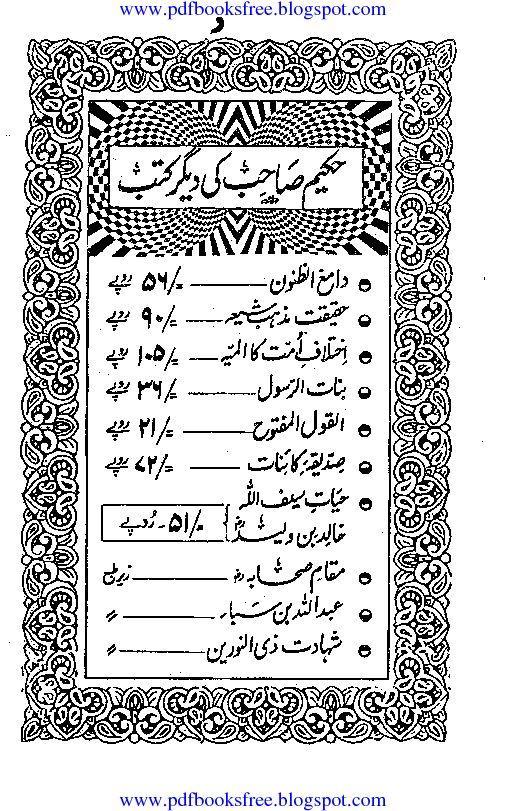 www.pdfbooksfree.blogspot.com
حکیم صاحب کی دیگر کتب
دامغ الظنون ۵۶/= روپے
حقیقت مذہب شیعہ ۹۰/= روپے
اختلافِ اُمّت کا المیہ ۱۰۵/= روپے
بنات الرّسول ۳۶/= روپے
القول المفتوح ۲۱/= روپے
صدیقۂ کائنات ۷۲/= روپے
حیاتِ سیف اللہ
خالد بن ولیدؓ ۵۱/= روپے
مقام صحابہؓ زیر طبع
عبداللہ بن سباء 〃
شہادت ذی النورین 〃
www.pdfbooksfree.blogspot.com